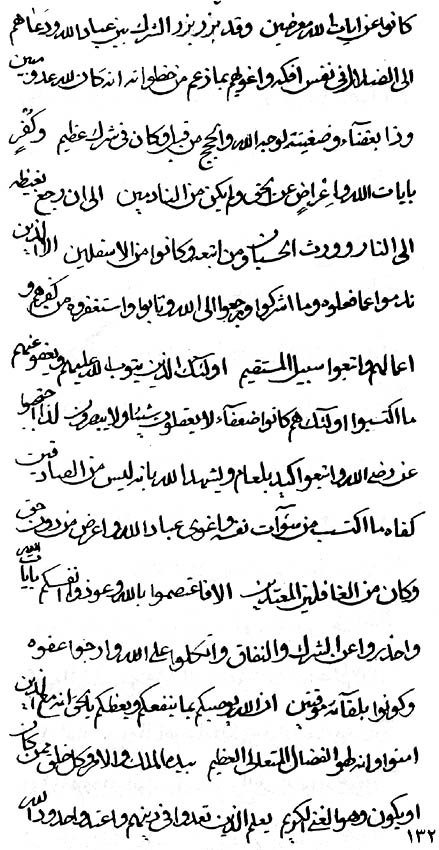 كانوا عن ايات الله معرضين وقد بزر بزر الشرك بين عباد الله ودعاهم
الى الضلال فى نفس افكه واغويهم بماذعم من خطواته انه كان لله عدو مبين
وذا بغضآء وضغينة لوجه الله والحجج من قبل وكان فى شرك عظيم وكفر
بايات الله واعراض عن الحق ولم يكن من النادمين الى ان رجع بغيظه
الى النار وورث الحسبان ومن اتبعه وكانوا من الاسفلين الا الذين
ندموا عما فعلوه وبما اشركوا ورجعوا الى الله وتابوا واستغفروه من كفرهم و
اعمالهم واتبعوا سبيل المستقيم اولئك الذين يتوب الله عليهم ويعفو عنهم
ما اكتسبوا اولئك هم كانوا ضعفآء لا يعقلون شيئا ولا يبصرون لذا
عن الله واتبعوا كيد بلعام ويشهد الله بانه ليس من الصادقين
كفاه ما اكتسب من سوآت نفسه واغوى عباد الله واعرض من دون حق
وكان من الغافلين المعتدين الا فاعتصموا بالله وعوذوا انفسكم بايات الله
واحذروا عن الشرك والنفاق واتكلوا على الله وارجوا عفوه
وكونوا بلقآئه موقنين ان الله يوصيكم بما ينفعكم ويعظكم بالحق انه مع الذين
امنوا وانه لهو الفضال المتعالى العظيم بيده الملك والامر وكل خلق ممن كان
او يكون وهو الغنى الكريم يعلم الذين تعدوا فى دينهم واعتدوا حدود الله
١٣٢